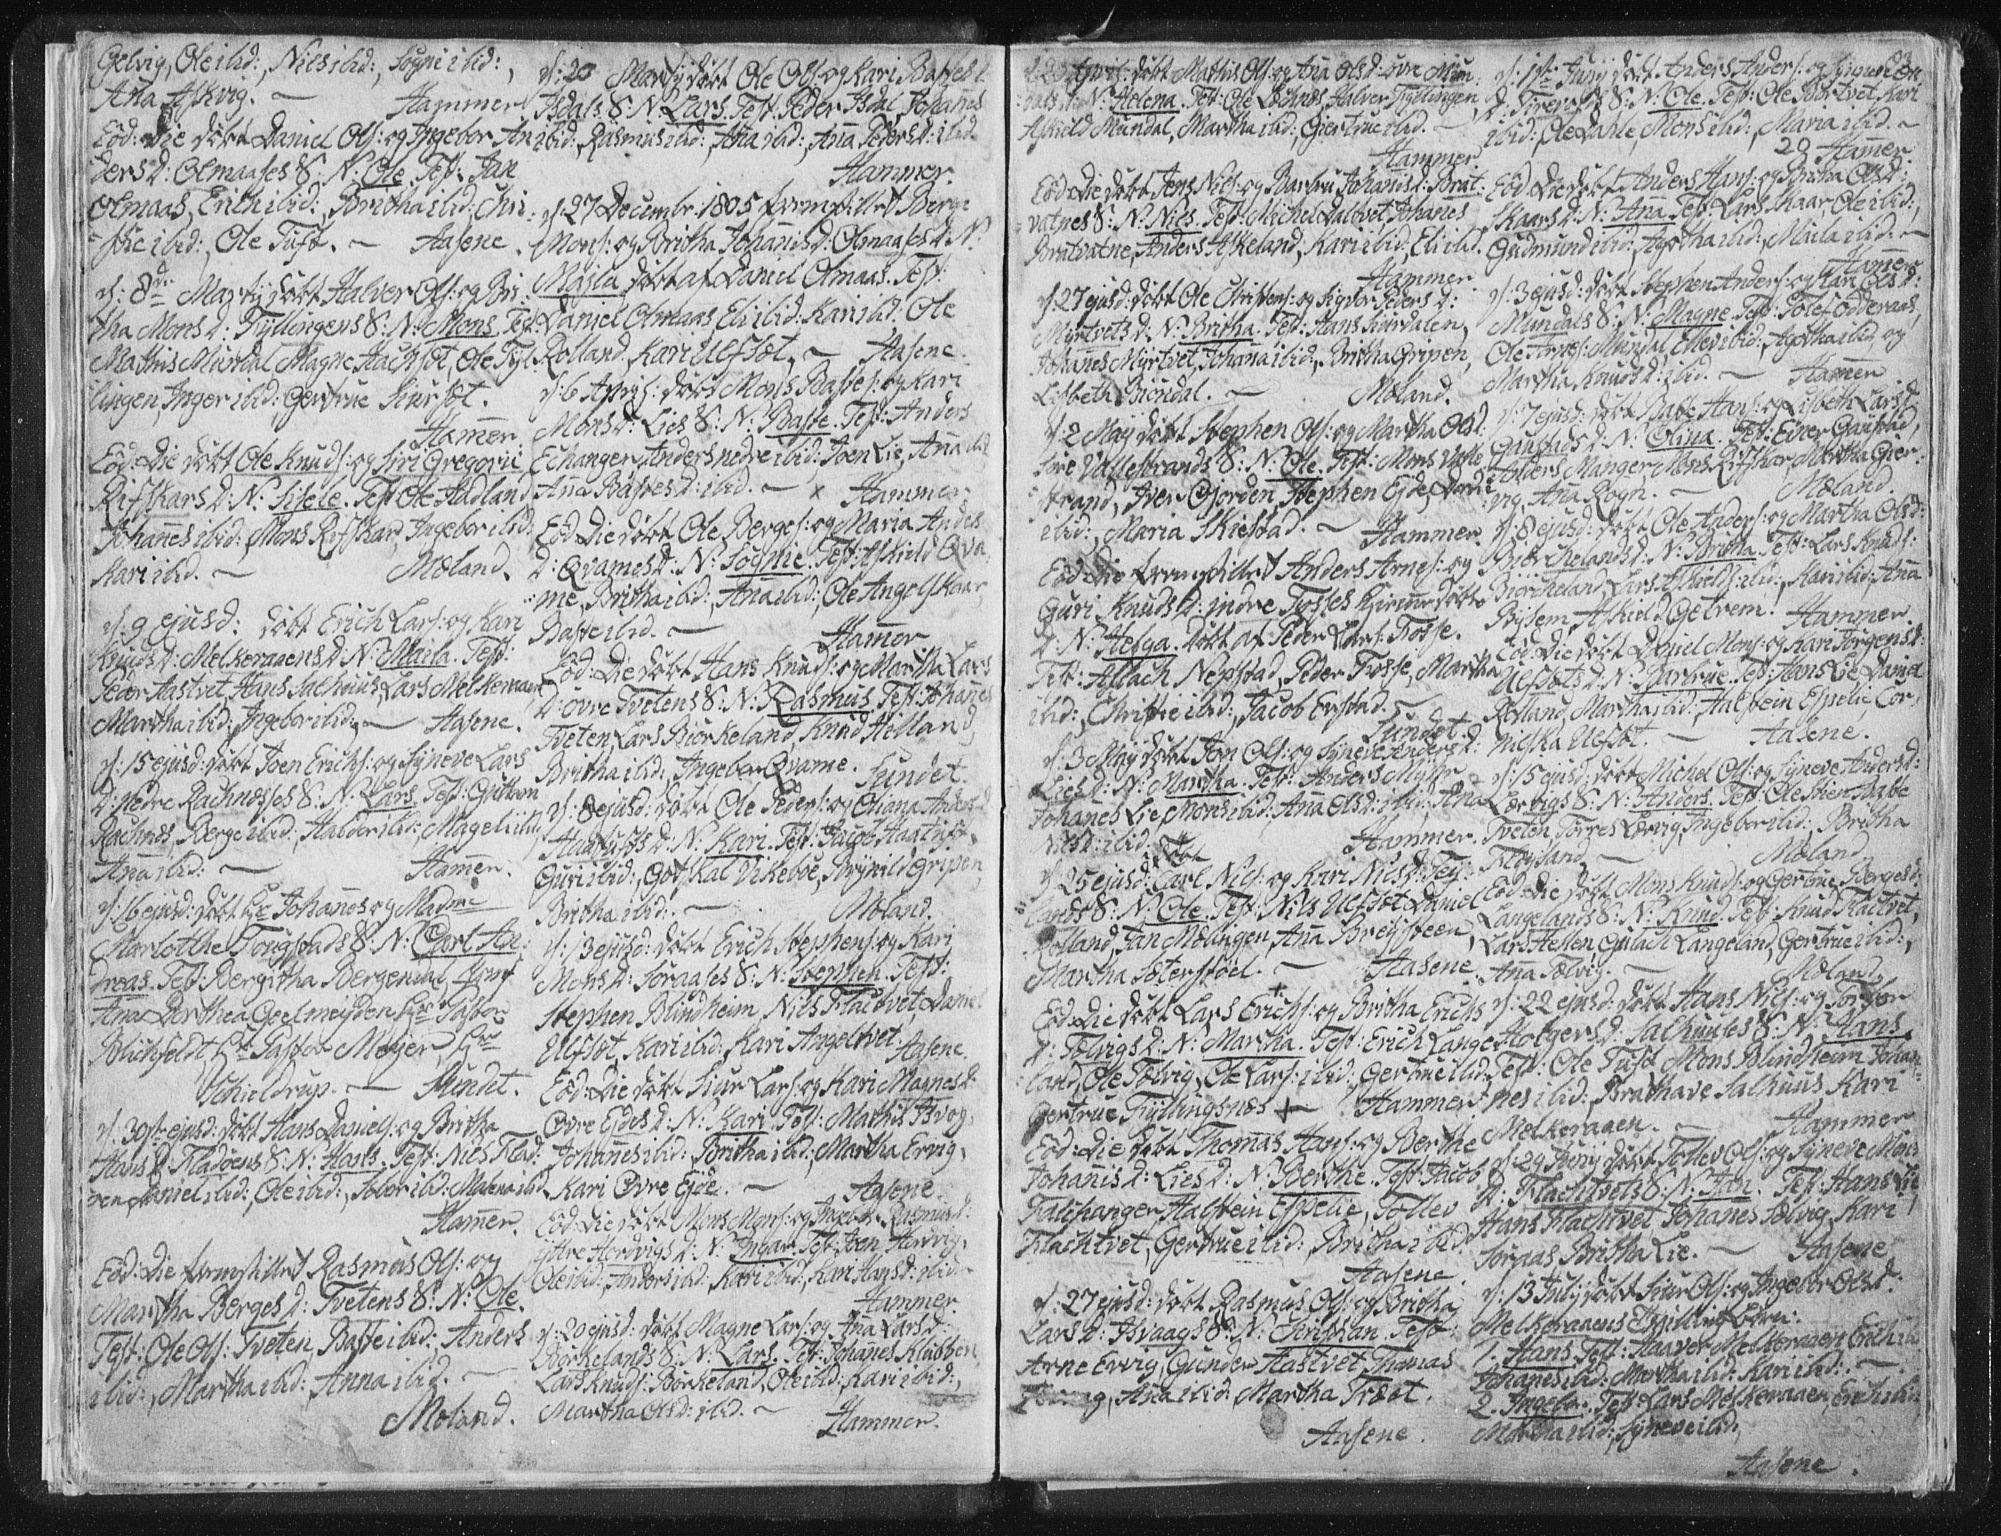 Gelvig, Ole ibid:, Niels ibid:, Sogni ibid:,
Ana Askvig. — Hammer
Eod: Die døbt Daniel Ols: og Ingebor An
ders D: Olmaases S: N: Ole. Test: Jan
Olmaas, Erich ibid:, Britha ibid: Chri
ibid:, Ole Tuft. — Aasene.
d: 8de Martij døbt Halver Ols: og Bri
tha Mons D: Fyllingens S: N: Mons. Test:
Mathis Mundal, Magne Hachst, Ole Fyl
lingen, Inger ibid:, Gertrue
Hamer.
Eod: Die døbt Ole Knuds: og Siri Gregorii
Rifskars D: N: Sisele. Test Ole Hadland
Johannes ibid:, Mons Rifskar, Ingebor ibid:
Kari ibid. — Moland.
d: 9 ejusd: døbt Erich Lars: og Kari
Knuds D: Melkeraaens D: N: Maila. Test:
Peder Hastvet, Hans Salhuus, Lars Melkeraaen
Martha ibid:, Ingebor ibid: — Aasene.
d: 15 ejusd: døbt Joen Erichs: og Syneve Lars
D: Nedre Rachnesses S: N: Lars. Test: Guttorm
Rachnes, Berge ibid:, Haldor ibid:, Mageli ibid:
Ana ibid: — Hamer.
d: 16 ejusd: døbt Hr Johannes og Madme
Charlothe Tougstads S: N: Carl An
dreas. Test: Bergitha Bergendal, Jomf
Ana Dorthea Geelmeyden, Hr Pastor
Blichfeldt, Hr Pastor Meyer, Hr
Schieldrup. — Sundet.
d: 30st ejusd: døbt Hans Daniels: og Britha
Hans D: Fladøens S: N: Hans. Test: Niels Flad:
øen, Daniel ibid:, Ole ibid:, ibid:, Malena ibid
Hamer.
Eod: Die fremstillet Rasmus Ols: og
Martha Berges D: Tvetens S: N: Ole.
Test: Ole Ols: Tveten, Baste ibid:, Anders
ibid:, Martha ibid:, Anna ibid. —
Moland.
d: 20 Martij døbt Ole Ols: og Kari Bastes D:
Isdals S: N: Lars. Test: Peder Isdal, Johannes
ibid:, Rasmus ibid:, Ana ibid:, Ana Peders D: ibid
Hammer.
d: 27 Decembr: 1805 fremstillet Berge
Mons: og Britha Johannes D: Olmaases D: N:
Magla døbt af Daniel Olmaas. Test:
Daniel Olmaas, Eli ibid: Kari ibid: Ole
Rolland, Kari Ulfset. — Aasene.
d: 6 April: døbt Mons Bastes: og Kari
Mons D: Lies S: N: Baste. Test: Anders
Echanger, Anders nedre ibid: Joen Lie, Ana ibid
Ana Bastes D: ibid. — × Hammer.
Eod: Die døbt Ole Berges: og Maria Anders
D: Qvames D: N: Sognie. Test: Askild Qva
me, Britha ibid:, Ana ibid:, Ole Angelskaar,
Baste ibid. — Hammer
Eod: Die døbt Hans Knuds: og Martha Lars
D: øvre Tvetens S: N: Rasmus. Test: Johannes
Tveten, Lars Biørkeland, Knud Helland,
Britha ibid:, Ingebor Qvame. Sundet.
d: 8 ejusd: døbt Ole Peders: og Oliana Anders D
D: N: Kari. Test: Jacob
Guri ibid:, Gotskal Vikeboe, Brynild Gripen,
Britha ibid: — Moland.
d: 13 ejusd: døbt Erich Stephens: og Kari
Mons D: Søraases S: N: Stephen. Test:
Stephen Blindheim, Niels Flachtvet, Daniel
Ulfset, Kari ibid:, Kari Angeltvet. Aasene.
Eod: Die døbt Siur Lars: og Kari Magnes D:
Øvre Eides D: N: Kari. Test: Mathis Isvog,
Johannes ibid:, Britha ibid:, Martha Ervig,
Kari Øvre Eide. — Aasene.
Eod: Die døbt Mons Mons: og Ingebor Rasmus D:
yttre Hordvigs D: N: Ingar. Test: Joen Hordvig,
Ole ibid:, Anders ibid:, Kari ibid:, Kari Hans D: ibid. —
Hammer.
d: 20 ejusd: døbt Magne Lars: og Ana Lars D:
Børkelands S: N: Lars. Test: Johannes Klubben
Lars Knuds: Børkeland, Ole ibid:, Kari ibid:,
Martha Ols D: ibid. — Hammer.
April: døbt Mathis Ols: og Ana Ols D: øvre Mun
dals D: N: Helena. Test: Ole Halver Fyllingen,
Askield Mundal, Martha ibid:, Giertrue ibid. —
Hammer.
Eod: Die døbt Jens Niels: og Barbru Johannis D: Brat:
vatnes S: N: Niels. Test: Michel Daltvet, Johannes
Bratvatne, Anders Askeland, Kari ibid, Eli ibid.
Hammer.
d: 27 ejusd: døbt Ole Christens: og Sigvor Peders D:
Myrtvets D: N: Britha. Test: Hans
Johannes Myrtvet, Johanna ibid:, Britha Gripen,
Lisbeth Biøndal. — Moland.
d: 2 Maij døbt Stephen Ols: og Martha Ols D:
Vallestrands S: N: Ole. Test: Mons Valle
strand, Iver Giorden, Stephen Eide,
ibid:, Maria Skiestad. — Hammer.
Eod: Die fremstillet Anders Arnes: og
Guri Knuds D: indre Tosses døbte
D: N: Helga. Døbt af Peder Lars: Tosse.
Test: Aslach Nepstad, Peder Tosse, Martha
ibid:, Christie ibid:, Jacob Erstad. —
Sundet.
d: 3 Maij døbt Jon Ols: og Syneve Anders D:
Lies D: N: Martha. Test: Anders Myhr
Johannes Lie, Mons ibid:, Ana Ols D: ibid, Ana
Niels D: ibid: Hammer.
døbt
d: 25 ejusd: Carl Niels: og Kari Niels D: Tei
lands S: N: Ole. Test: Niels Ulfset, Daniel
Rolland, Jan Mølingen, Ana Breysteen,
Martha Seterstøel. — Aasene.
Eod: Die døbt Lars Erichs: og Britha Erichs
D: Tolvigs D: N: Martha. Test: Erich Lange
land, Ole Tolvig, Ole Lars: ibid:, Gertrue ibid
Gertrue Fyllingsnes + Hammer
Eod: Die døbt Thomas Hans: og Berthe
Johannis D: Lies D: N: Berthe. Test: Jacob
Falchanger, Halstein Espelie, Tollev
Flachtvet, Gertrue ibid:, Britha ibid.
Aasene.
d: 27 ejusd: døbt Rasmus Ols: og Britha
Lars D: Isvaags S: N: Christian. Test:
Arne Ervig, Gunder Hastvet, Thomas
Ana ibid: Martha Træet.
Aasene.
d: 1ste Junij døbt Anders Anders: og
D: S: N: Ole. Test: Ole Kari
ibid: Ole Dahle, Mons ibid:, Maria ibid: —
Hamer.
Eod: Die døbt Anders Hans: og Britha Ols D:
Skaars D: N: Ana. Test: Lars Skaar, Ole ibid:,
Gudmund ibid:, Agatha ibid:, Maila ibid: —
Hamer.
d: 3 ejusd: døbt Stephen Anders: og Kari Ols D:
Mundals S: N: Magne. Test: Tolef Odderaas,
Ole Arnes: Mundal, Ellev ibid:, Agatha ibid, og
Martha Knuds D: ibid. — Hammer
d: 7 ejusd: døbt Baste Hans: og Lisbeth Lars D:
Gaustads D: N: Olina. Test: Einer Gaustad,
Anders Manger, Mons Rifskar, Martha Gier
vig, Ana Rogn. — Moland.
d: 8 ejusd: døbt Ole Anders: og Martha Ols D:
Biørchelands D: N: Britha. Test: Lars Knuds:
Biørcheland, Lars Askields: ibid:, Kari ibid:, Ana
Bysem, Askield Getrem. Hammer.
Eod: Die døbt Daniel Mons: og Kari Jørgens D:
Ulfsets D: N: Barbrue. Test: Hans Lie, Daniel
Rolland, Martha ibid:, Halstein Espelie, Cor
nilska Ulfset. — Aasene.
d: 15 ejusd: døbt Michel Ols: og Syneve Anders D:
Lervigs S: N: Anders. Test: Ole Baste
Tveten, Torres Lervig, Ingebor ibid:, Britha
Fløysand. — Moland.
Eod: Die døbt Mons Knuds: og Gertrue Berges D:
Langelands S: N: Knud. Test: Knud Flachtvet,
Lars Hesten, Langeland, Gertrue ibid:,
Ana Tolvig. — Moland.
d: 22 ejusd: døbt Hans Niels: og
Holgers D: Salhuuses S: N: Hans.
Test: Ole Tuft, Mons Blindheim, Johan
nes ibid:, Salhuus, Kari
Melkeraaen. — Hammer
d: 29 Junij døbt Tollev Ols: og Syneve Mons
D: Flachtvets S: N: Jan. Test: Hans Lie
Hans Flachtvet, Johannes Tolvig, Kari
Søraas, Britha Lie. — Aasene
d: 13 Julij døbt Siur Ols: og Ingebor Ols D:
Melkeraaens Tvilling Børn:
1. Hans. Test: Haaver Melkeraaen, Erich ibid
Johannes ibid:, Martha ibid: Kari ibid: —
2. Ingebor. Test: Lars Melkeraaen, Erich ibid:
Martha ibid:, Syneve ibid,
Aasene.